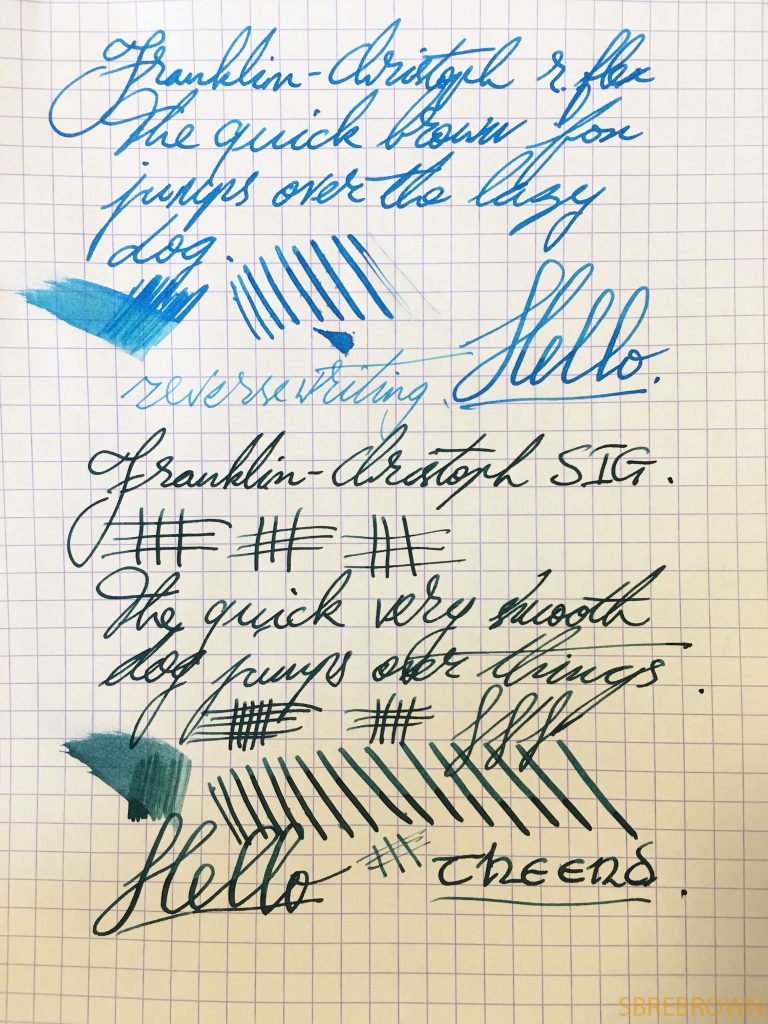 Franklin-Christoph r. flex
The quick brown fox
jumps over the lazy
dog.
Hello.
reverse writing.
Franklin-Christoph SIG.
The quick very smooth
dog jumps over things.
Hello
the end.
SBREBROWN